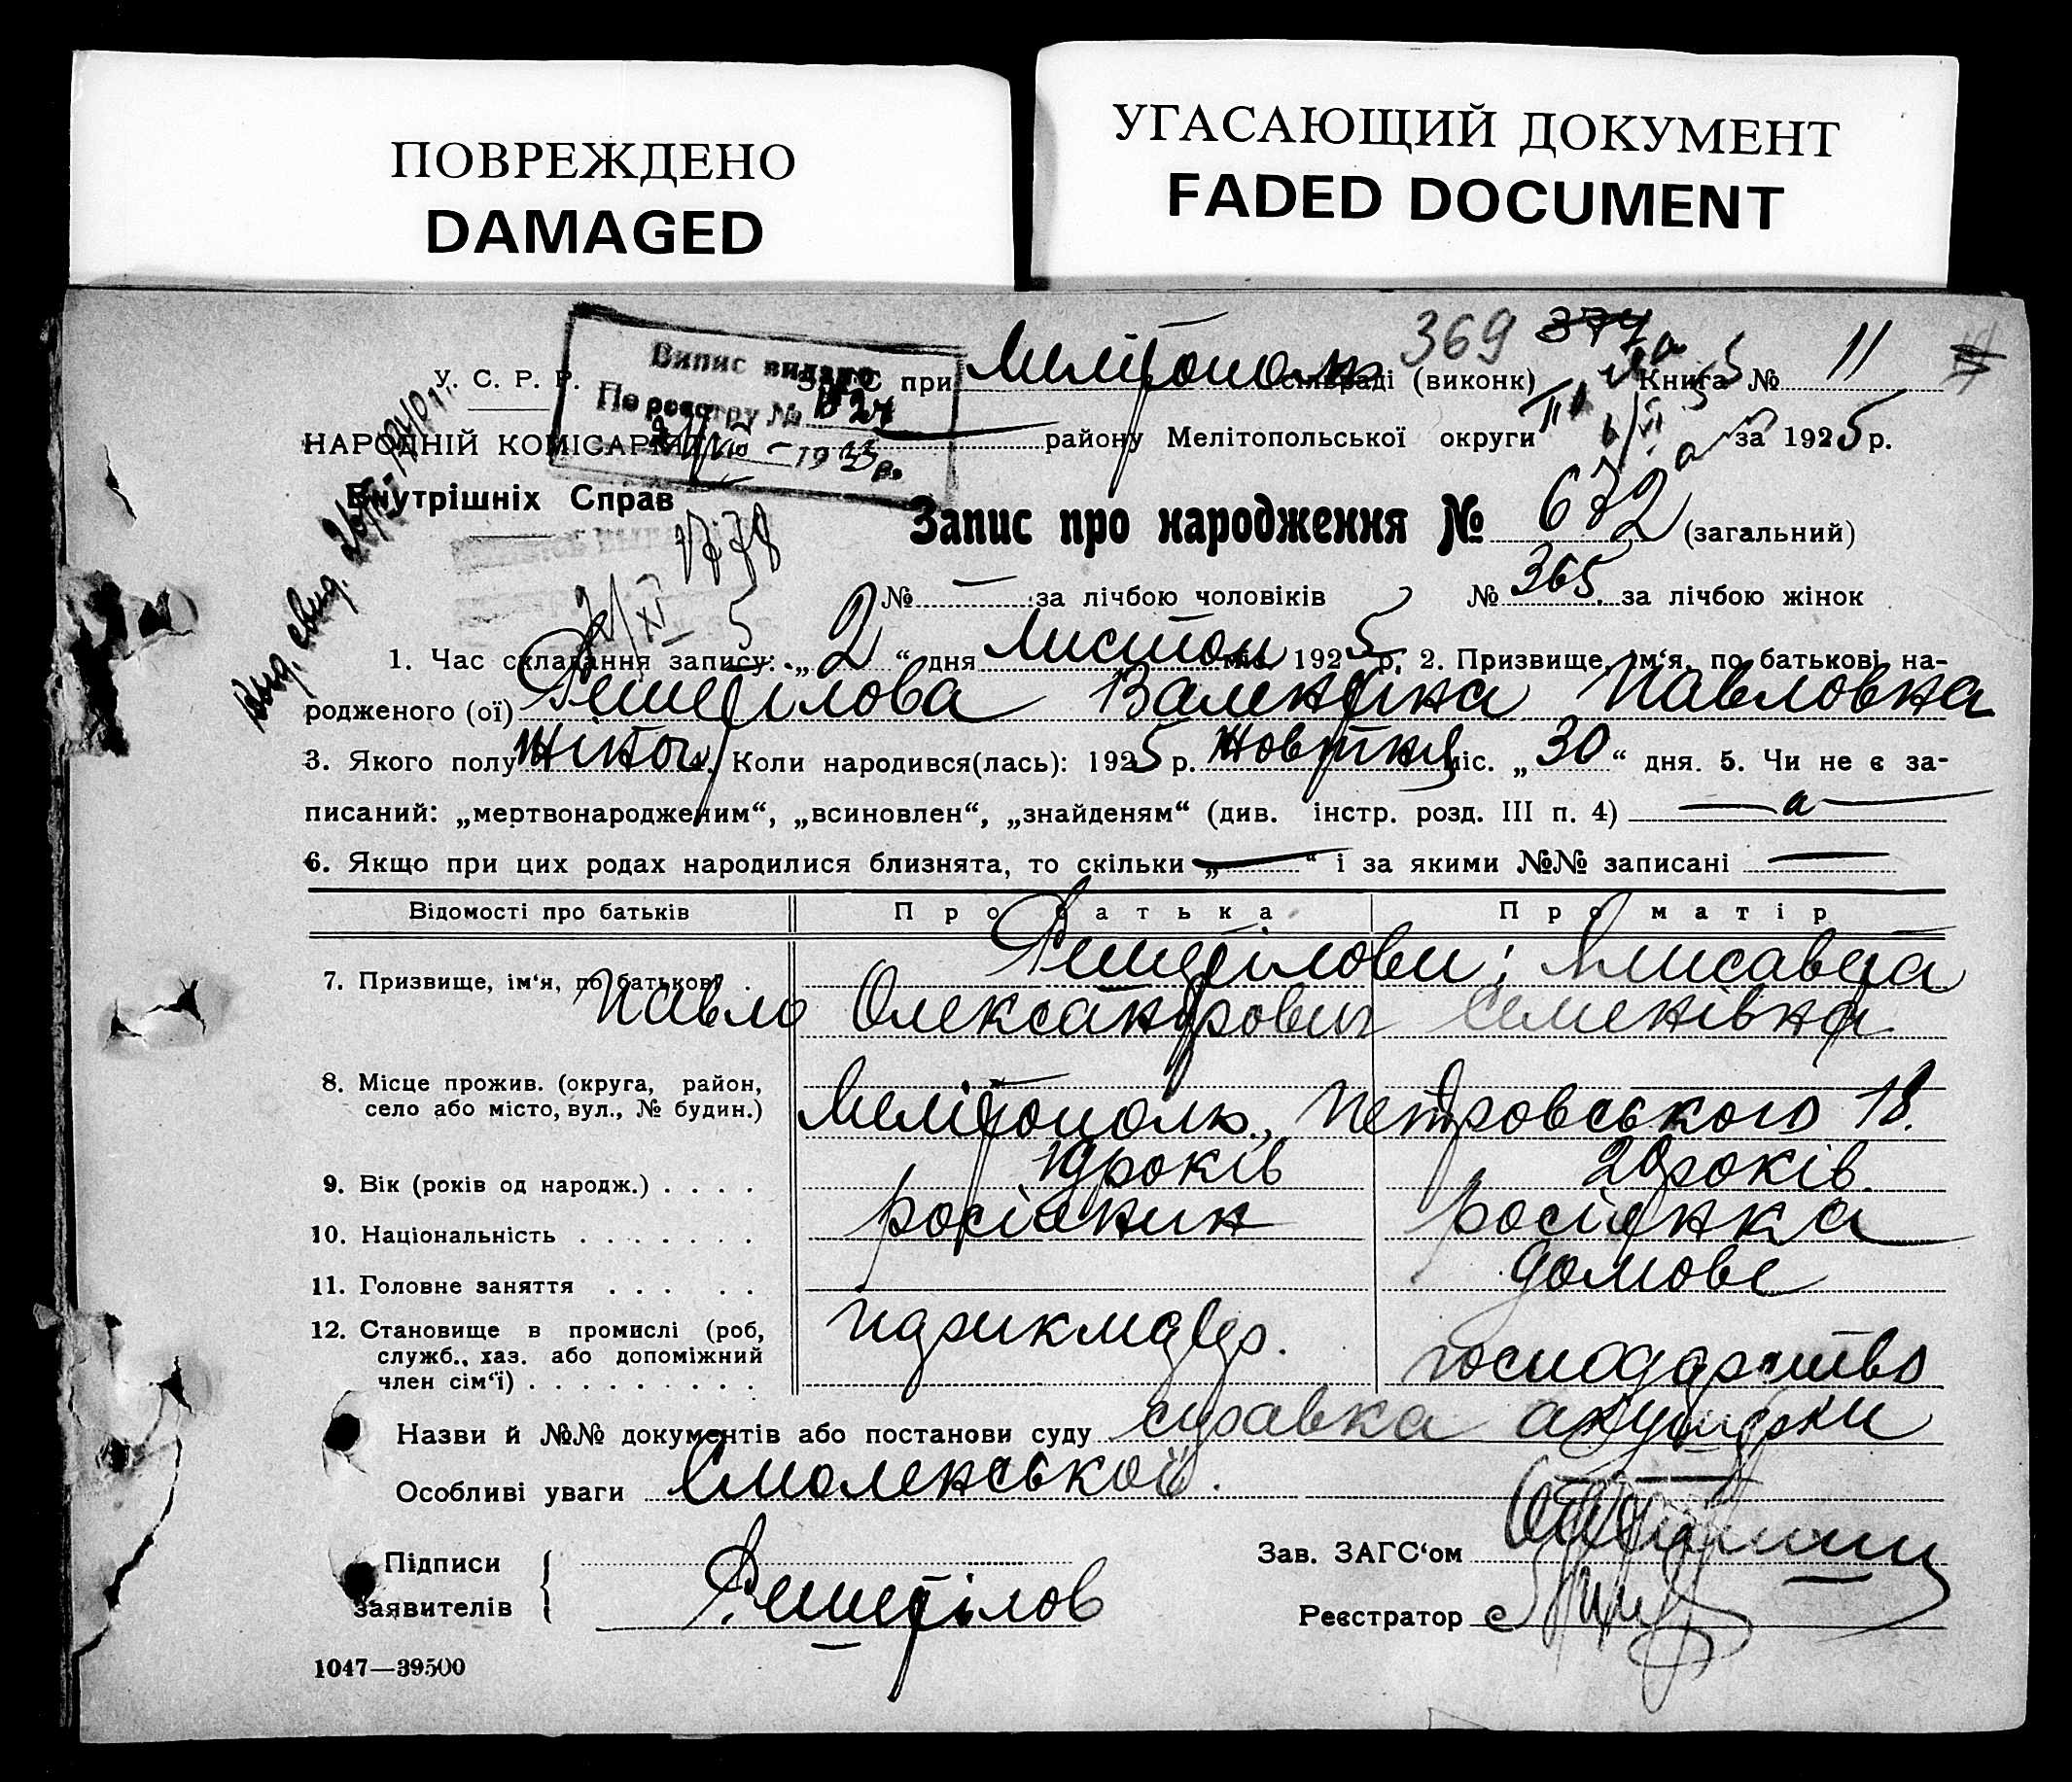 ПОВРЕЖДЕНО
DAMAGED
УГАСАЮЩИЙ ДОКУМЕНТ
FADED DOCUMENT
369 374
Випис видано
По реєстру №
193 р.
У. С. Р. Р.
НАРОДНІЙ КОМІСАРІЯТ
Внутрішніх Справ
ЗАГС при Мелітополь сільраді (виконк) Книга № 11
району Мелітопольської округи за 1925 р.
Запис про народження № 672 (загальний)
1778
№ — за лічбою чоловіків № 365 за лічбою жінок
1. Час складання запису: „2“ дня Листоп міс. 1925 р. 2. Призвище, ім‘я, по батькові на-
родженого (ої) Решетілова Валентіна Павловна
3. Якого полу жіноч 4. Коли народився(лась): 1925 р. Жовтня міс. „30“ дня. 5. Чи не є за-
писаний: „мертвонародженим“, „всиновлен“, „знайденям“ (див. інстр. розд. III п. 4)
6. Якщо при цих родах народилися близнята, то скільки „—“ і за якими №№ записані —
Відомості про батьків Про батька Про матір
7. Призвище, ім‘я, по батькові Решетілови; Лисавета
Павло Олександрович Семенівна
8. Місце прожив. (округа, район,
село або місто, вул., № будин.) Мелітополь, Петровського 18.
9. Вік (років од народж.) років 29 років
10. Національність росіянин росіянка
11. Головне заняття домове
12. Становище в промислі (роб,
служб., хаз. або допоміжний
член сім‘ї) господарство
Назви й №№ документів або постанови суду справка акушерки
Особливі уваги Смоленської.
Підписи
Заявителів Решетілов
Зав. ЗАГС‘ом
Реєстратор
1047—39500